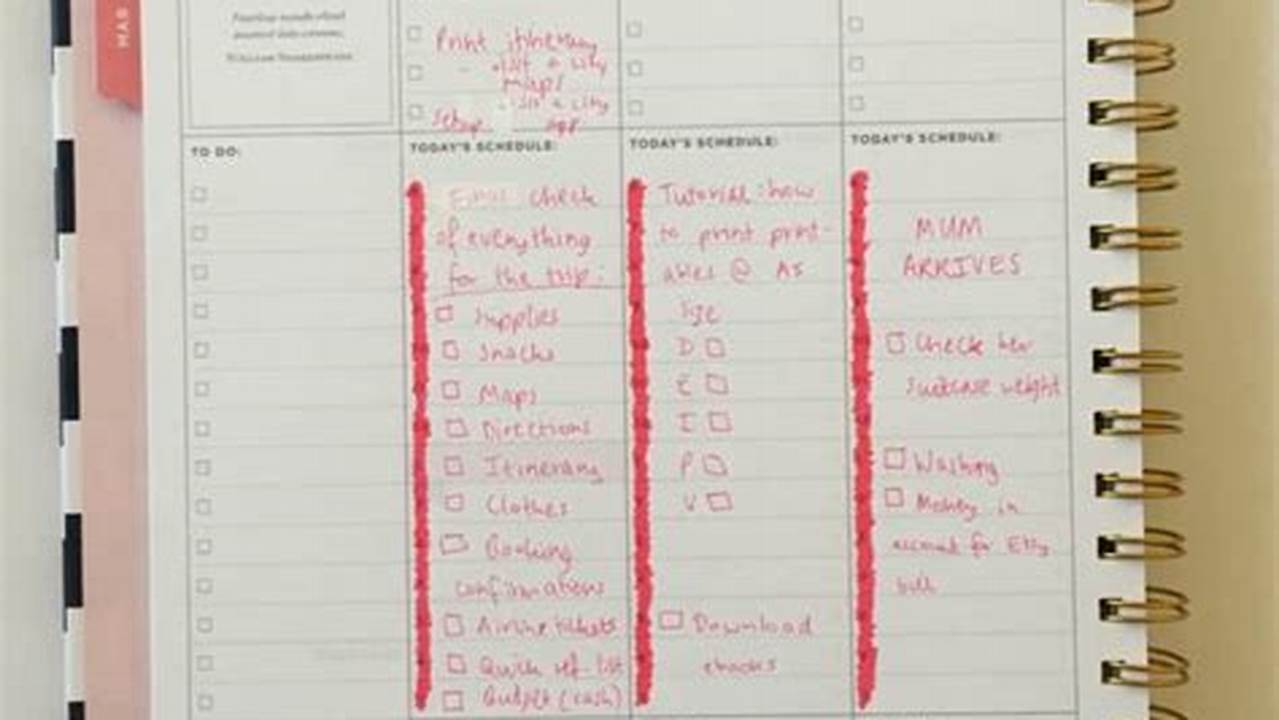 MAY
WILLIAM SHAKESPEARE
Print itinerary
- list + city
maps
- list + city
Setup app
TO DO:
TODAY'S SCHEDULE:
check
of everything
for the trip:
Supplies
Snacks
Maps
Directions
Itinerary
Clothes
Booking
confirmations
Airline tickets
Quick ref list
Budget (cash)
TODAY'S SCHEDULE:
Tutorial: how
to print print-
ables @ A5
size
D
E
I
P
V
Download
ebooks
TODAY'S SCHEDULE:
MUM
ARRIVES
Check her
suitcase weight
Washing
Money in
account for Etsy
bill